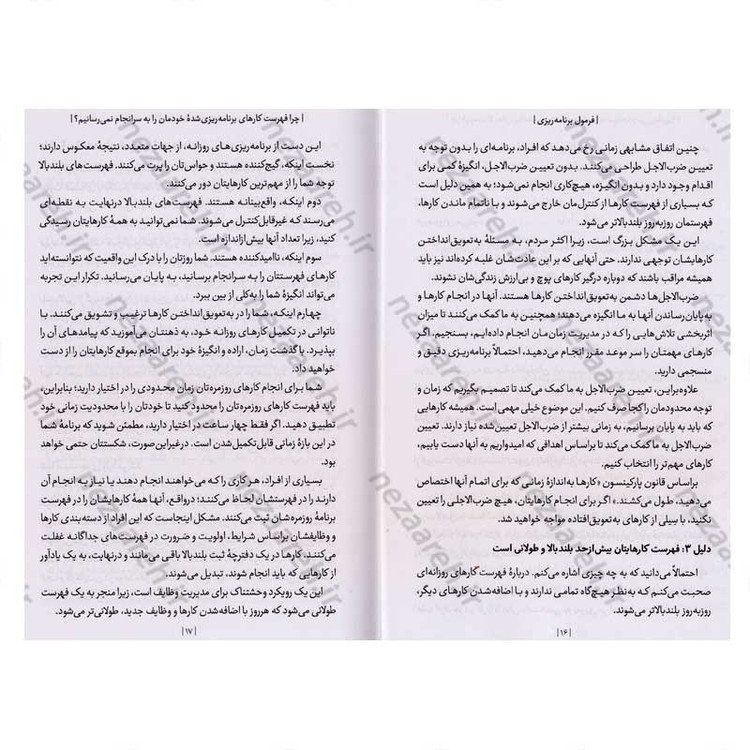 | فرمول برنامه‌ریزی |
چنین اتفاق مشابهی زمانی رخ می‌دهد که افراد، برنامه‌ای را بدون توجه به
تعیین ضرب‌الاجل طراحی می‌کنند. بدون تعیین ضرب‌الاجل، انگیزهٔ کمی برای
اقدام وجود دارد و بدون انگیزه، هیچ‌کاری انجام نمی‌شود؛ به همین دلیل است
که بسیاری از فهرست کارها از کنترل‌مان خارج می‌شوند و با ناتمام ماندن کارها،
فهرستمان روزبه‌روز بلندبالاتر می‌شود.
این یک مشکل بزرگ است، زیرا اکثر مردم، به مسئلهٔ به‌تعویق‌انداختن
کارهایشان توجهی ندارند. حتی آنهایی که بر این عادت‌شان غلبه کرده‌اند نیز باید
همیشه مراقب باشند که دوباره درگیر کارهای پوچ و بی‌ارزش زندگی‌شان نشوند.
ضرب‌الاجل‌ها دشمن به‌تعویق‌انداختن کارها هستند. آنها در انجام کارها و
به‌پایان‌رساندن آنها به ما انگیزه می‌دهند؛ همچنین به ما کمک می‌کنند تا میزان
اثربخشی تلاش‌هایی را که در مدیریت زمان‌مان انجام داده‌ایم، بسنجیم. اگر
کارهای مهمتان را سر موعد مقرر انجام می‌دهید، احتمالاً برنامه‌ریزی دقیق و
منسجمی دارید.
علاوه‌براین، تعیین ضرب‌الاجل به ما کمک می‌کند تا تصمیم بگیریم که زمان و
توجه محدودمان را کجا صرف کنیم. این موضوع خیلی مهمی است. همیشه کارهایی
که باید به پایان برسانیم، به زمانی بیشتر از ضرب‌الاجل تعیین شده نیاز دارند.
ضرب‌الاجل به ما کمک می‌کند تا براساس اهدافی که امیدواریم به آنها دست یابیم،
کارهای مهم‌تر را انتخاب کنیم.
براساس قانون پارکینسون «کارها به‌اندازهٔ زمانی که برای اتمام آنها اختصاص
می‌دهید، طول می‌کشند.» اگر برای انجام کارهایتان، هیچ ضرب‌الاجلی را تعیین
نکنید، با سیلی از کارهای به‌تعویق‌افتاده مواجه خواهید شد.
دلیل ۳: فهرست کارهایتان بیش‌ازحد بلندبالا و طولانی است
احتمالاً می‌دانید که به چه چیزی اشاره می‌کنم. دربارهٔ فهرست کارهای روزانه‌ای
صحبت می‌کنم که به‌نظر هیچ‌گاه تمامی ندارند و با اضافه‌شدن کارهای دیگر،
روزبه‌روز بلندبالاتر می‌شوند.
| ۱۶ |
| چرا فهرست کارهای برنامه‌ریزی‌شدهٔ خودمان را به سرانجام نمی‌رسانیم؟ |
این دست از برنامه‌ریزی‌های روزانه، از جهات متعدد، نتیجهٔ معکوس دارند؛
نخست اینکه، گیج‌کننده هستند و حواس‌تان را پرت می‌کنند. فهرست‌های بلندبالا
توجه شما را از مهم‌ترین کارهایتان دور می‌کنند.
دوم اینکه، واقع‌بینانه نیستند. فهرست‌های بلندبالا درنهایت به نقطه‌ای
می‌رسند که غیرقابل‌کنترل می‌شوند. شما نمی‌توانید به همهٔ کارهایتان رسیدگی
کنید، زیرا تعداد آنها بیش‌ازاندازه است.
سوم اینکه، ناامیدکننده هستند. شما روزتان را با درک این واقعیت که نتوانسته‌اید
کارهای فهرستتان را به سرانجام برسانید، به پایان می‌رسانید. تکرار این تجربه
می‌تواند انگیزهٔ شما را به‌کلی از بین ببرد.
چهارم اینکه، شما را در به‌تعویق‌انداختن کارها ترغیب و تشویق می‌کنند. با
ناتوانی در تکمیل کارهای روزانه خود، به ذهنتان می‌آموزید که پیامدهای آن را
بپذیرد. با گذشت زمان، اراده و انگیزهٔ خود برای انجام بموقع کارهایتان را از دست
خواهید داد.
شما برای انجام کارهای روزمره‌تان زمان محدودی را در اختیار دارید؛ بنابراین،
باید فهرست کارهای روزمره‌تان را محدود کنید تا خودتان را با محدودیت زمانی خود
تطبیق دهید. اگر فقط چهار ساعت در اختیار دارید، مطمئن شوید که برنامهٔ شما
در این بازهٔ زمانی قابل‌تکمیل‌شدن است. درغیراین‌صورت، شکستتان حتمی خواهد
بود.
بسیاری از افراد، هر کاری را که می‌خواهند انجام دهند یا نیاز به انجام آن
دارند را در فهرستشان لحاظ می‌کنند؛ درواقع، آنها همهٔ کارهایشان را در فهرست
برنامهٔ روزمره‌شان ثبت می‌کنند. مشکل اینجاست که این افراد از دسته‌بندی کارها
و وظایفشان براساس شرایط، اولویت و ضرورت در فهرست‌های جداگانه غفلت
می‌کنند. کارها در یک دفترچهٔ ثبت بلندبالا باقی می‌مانند و درنهایت، به یک یادآور
از کارهایی که باید انجام شوند، تبدیل می‌شوند.
این یک رویکرد وحشتناک برای مدیریت وظایف است، زیرا منجر به یک فهرست
طولانی می‌شود که هرروز با اضافه‌شدن کارها و وظایف جدید، طولانی‌تر می‌شود.
| ۱۷ |
nezaareh.ir